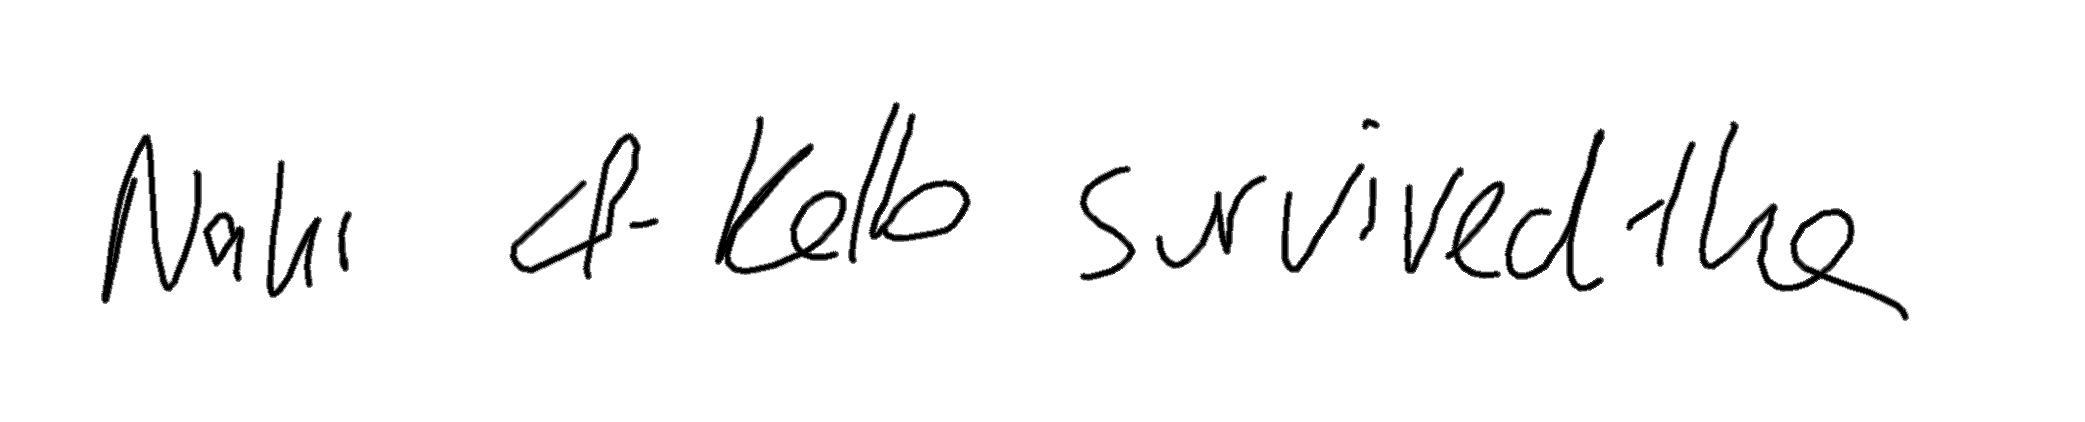 Nahi Kello survived the